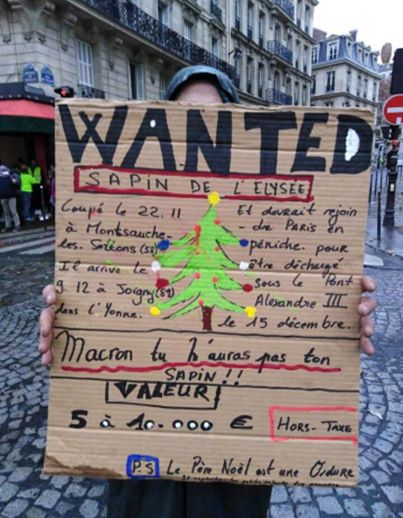 WANTED
SAPIN DE L'ELYSÉE
Coupé le 22.11
à Montsauche-
les. Settons (58)
Il arrive le
9.12 à Joigny (89)
dans l'Yonne.
Et devrait rejoin
-dre Paris en
péniche. pour
être déchargé
sous le Pont
Alexandre III
le 15 décembre.
Macron tu n'auras pas ton
SAPIN !!
VALEUR
5 à 10.000 €
HORS-TAXE
P.S Le Père Noël est une Ordure